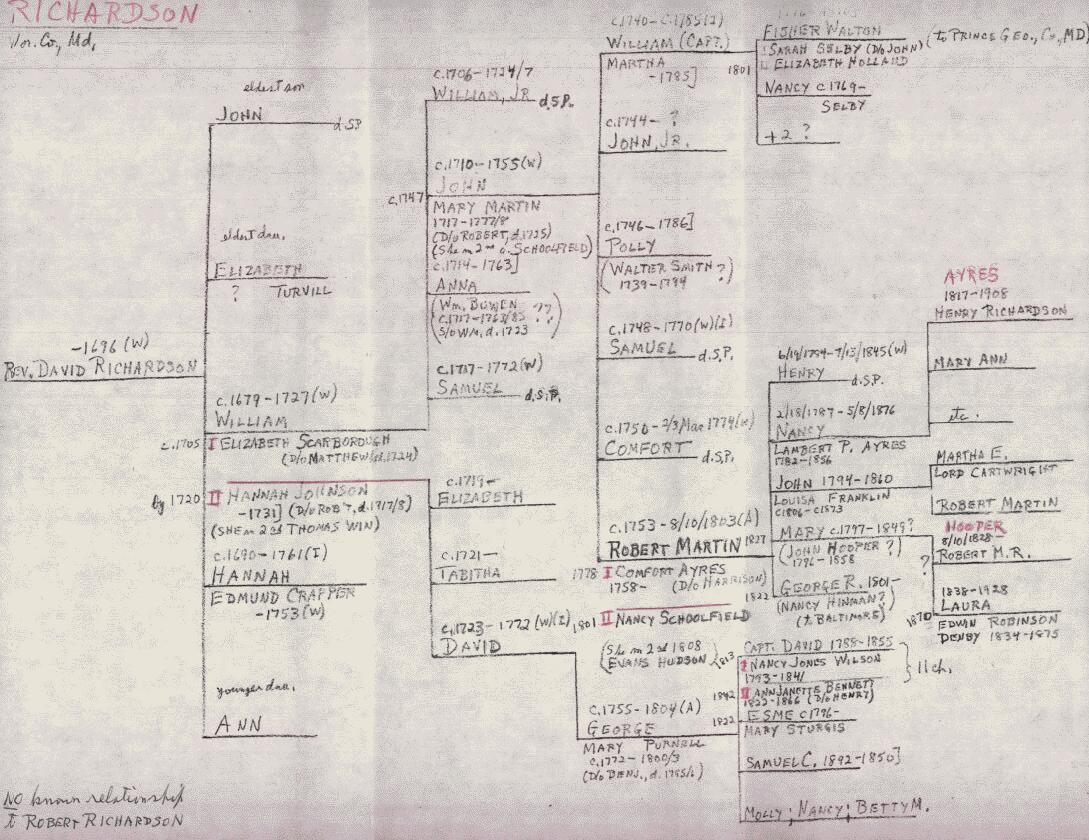 RICHARDSON
Wor. Co., Md,
eldest son
JOHN
d.S.P.
eldest dau.
ELIZABETH
? TURVILL
-1696 (W)
REV. DAVID RICHARDSON
c.1679-1727(W)
WILLIAM
c.1705 I ELIZABETH SCARBOROUGH
(D/o MATTHEW, d.1724)
by 1720 II HANNAH JOHNSON
-1731] (D/o ROB'T, d.1717/8)
(SHE m 2nd THOMAS WIN)
c.1690-1761(I)
HANNAH
EDMUND CRAPPER
-1753(W)
younger dau.
ANN
NO known relationship
to ROBERT RICHARDSON
c.1706-1724/7
WILLIAM, JR
d.S.P.
c.1710-1755(W)
JOHN
c.1747
MARY MARTIN
1717-1777/8
(D/o ROBERT, d.1725)
(She m 2nd SCHOOLFIELD)
c.1714-1763]
ANNA
(Wm. BOWEN ??
S/o WM, d.1723
c.1717-1772(W)
SAMUEL
d.S.P.
c.1719-
ELIZABETH
c.1721-
TABITHA
c.1723-1772(W)(I)
DAVID
WILLIAM (CAPT.)
MARTHA
-1785]
c.1744- ?
JOHN, JR.
c.1746-1786]
POLLY
(WALTER SMITH ?)
1739-1794
c.1748-1770(W)(I)
SAMUEL
d.S.P.
c.1750-2/3/Mar 1774(W)
COMFORT
d.S.P.
c.1753-8/10/1803(A)
ROBERT MARTIN
1778 I COMFORT AYRES
1758- (D/o HARRISON)
1801 II NANCY SCHOOLFIELD
(She m 2nd 1808
EVANS HUDSON)
c.1755-1804(A)
GEORGE
MARY PURNELL
c.1772-1800/3
(D/o BENJ.,
1801
FISHER WALTON
(to PRINCE GEO., Co., MD)
I SARAH SELBY (D/o JOHN)
II ELIZABETH HOLLAND
NANCY c.1769-
SELBY
+2 ?
6/19/1794-7/13/1845(W)
HENRY
d.S.P.
2/18/1787-5/8/1876
NANCY
LAMBERT P. AYRES
1782-1856
JOHN 1794-1860
1827
LOUISA FRANKLIN
c1806-c1873
MARY c.1797-1849?
(JOHN HOOPER ?)
1796-1858
GEORGE R. 1801-
1822
(NANCY HINMAN?)
(to BALTIMORE)
CAPT. DAVID 1788-1855
1813
I NANCY JONES WILSON
1793-1841
1842
II ANN JANETTE BENNETT
1822-1866 (D/o HENRY)
11 ch.
ESME c1796-
1822
MARY STURGIS
SAMUEL C. 1892-1850]
MOLLY; NANCY; BETTY M.
AYRES
1817-1908
HENRY RICHARDSON
MARY ANN
etc.
MARTHA E.
LORD CARTWRIGHT
ROBERT MARTIN
HOOPER
8/10/1828-
ROBERT M.R.
?
1838-1928
LAURA
1870
EDWIN ROBINSON
DENBY 1834-1875